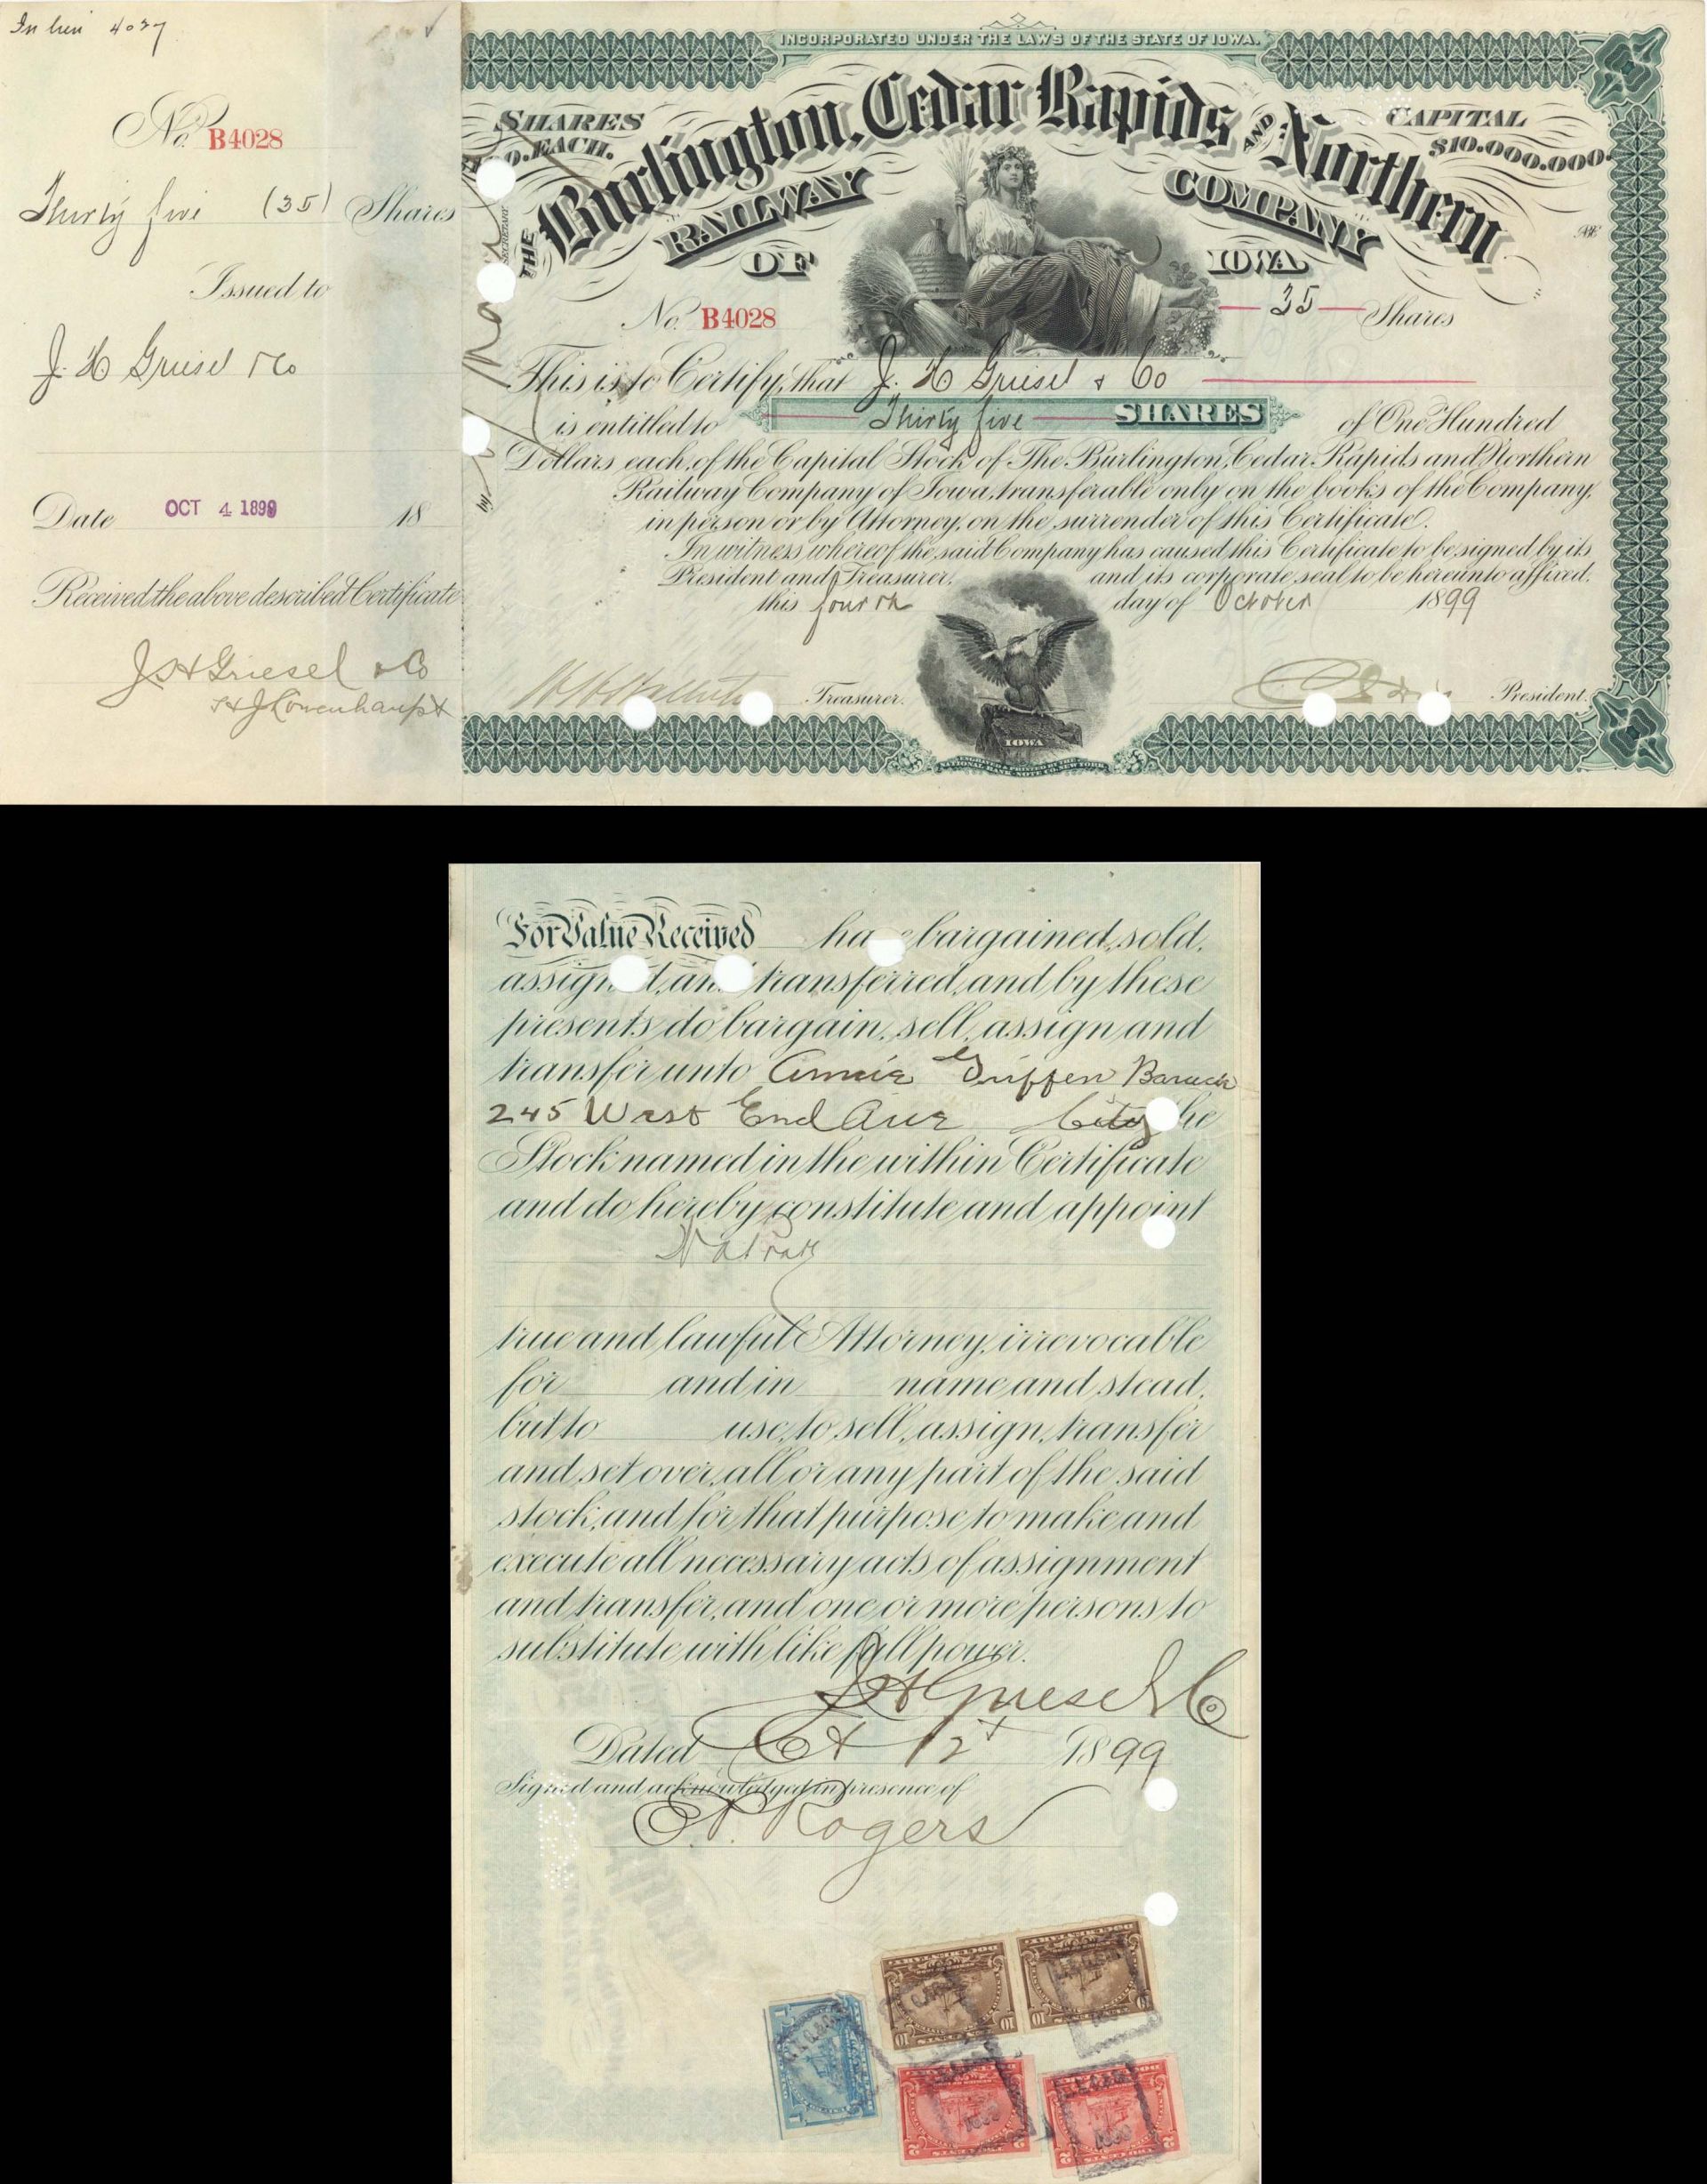 In lieu 4027
No. B4028
Thirty five (35) Shares
Issued to
J. H Griesel & Co
Date OCT 4 1899 18
Received the above described Certificate
J H Griesel & Co
INCORPORATED UNDER THE LAWS OF THE STATE OF IOWA.
SHARES
EACH.
CAPITAL
$10.000.000.
THE Burlington, Cedar Rapids AND Northern
RAILWAY COMPANY
OF IOWA.
SECRETARY
No. B4028
35 Shares
This is to Certify, that J. H Griesel & Co
is entitled to Thirty five SHARES of One Hundred
Dollars each, of the Capital Stock of The Burlington, Cedar Rapids and Northern
Railway Company of Iowa, transferable only on the books of the Company,
in person or by Attorney, on the surrender of this Certificate.
In witness whereof the said Company has caused this Certificate to be signed by its
President and Treasurer, and its corporate seal to be hereunto affixed,
this fourth day of October 1899
Treasurer. President.
IOWA
For Value Received have bargained, sold,
assigned, and transferred, and by these
presents do bargain, sell, assign and
transfer unto Annie Griffen Baruch
245 West End Ave City the
Stock named in the within Certificate
and do hereby constitute and appoint
true and lawful Attorney, irrevocable
for and in name and stead,
but to use, to sell, assign, transfer
and set over, all or any part of the said
stock; and for that purpose to make and
execute all necessary acts of assignment
and transfer, and one or more persons to
substitute with like full power.
J H Griesel & Co
Dated Oct 12 1899
Signed and acknowledged in presence of
E. P. Rogers
DOCUMENTARY
DOCUMENTARY
10 TEN CENTS 10
10 TEN CENTS 10
1 1
2 TWO CENTS 2
2 TWO CENTS 2